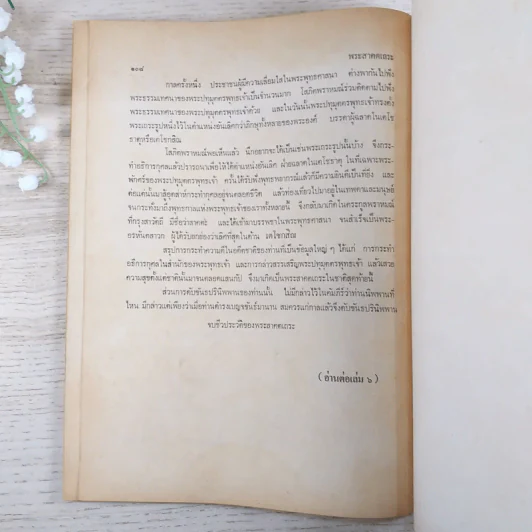 พระสาคตเถระ
๒๐๘
กาลครั้งหนึ่ง ประชาชนผู้มีความเลื่อมใสในพระพุทธศาสนา ต่างพากันไปฟัง
พระธรรมเทศนาของพระปทุมุตตรพุทธเจ้าเป็นจำนวนมาก โสภิตพราหมณ์ร่วมติดตามไปฟัง
พระธรรมเทศนาของพระปทุมุตตรพุทธเจ้าด้วย และในวันนั้นพระปทุมุตตรพุทธเจ้าทรงตั้ง
พระเถระรูปหนึ่งไว้ในตำแหน่งอันเลิศกว่าภิกษุทั้งหลายของพระองค์ บรรดาผู้ฉลาดในเตโช
ธาตุหรือเตโชกสิณ
โสภิตพราหมณ์พอเห็นแล้ว นึกอยากจะได้เป็นเช่นพระเถระรูปนั้นบ้าง จึงกระ-
ทำอธิการกุศลแล้วปรารถนาเพื่อให้ได้ตำแหน่งอันเลิศ ฝ่ายฉลาดในเตโชธาตุ ในที่เฉพาะพระ-
พักตร์ของพระปทุมุตตรพุทธเจ้า ครั้นได้รับฟังพุทธพยากรณ์แล้วก็มีความยินดีเป็นที่ยิ่ง และ
ต่อแต่นั้นมาสู้อุตส่าห์กระทำกุศลอยู่จนตลอดชีวิต แล้วท่องเที่ยวไปมาอยู่ในเทพคตและมนุษย์
จนกระทั่งมาถึงพุทธกาลแห่งพระพุทธเจ้าของเราทั้งหลายนี้ จึงกลับมาเกิดในตระกูลพราหมณ์
ที่กรุงสาวัตถี มีชื่อว่าสาคตะ และได้เข้ามาบรรพชาในพระพุทธศาสนา จนสำเร็จเป็นพระ-
อรหันตสาวก ผู้ได้รับยกย่องว่าเลิศที่สุดในด้าน เตโชกสิณ
สรุปการกระทำความดีในอดีตชาติของท่านที่เป็นข้อมูลใหญ่ ๆ ได้แก่ การกระทำ
อธิการกุศลในสำนักของพระพุทธเจ้า และการกล่าวสรรเสริญพระปทุมุตตรพุทธเจ้า แล้วเสวย
ความสุขตั้งแต่ชาตินั้นมาจนตลอดแสนกัป จึงมาเกิดเป็นพระสาคตเถระในชาติสุดท้ายนี้
ส่วนการดับขันธปรินิพพานของท่านนั้น ไม่มีกล่าวไว้ในคัมภีร์ว่าท่านนิพพานที่
ไหน มีกล่าวแต่เพียงว่าเมื่อท่านดำรงเบญจขันธ์มานาน สมควรแก่กาลแล้วจึงดับขันธปรินิพพาน
จบชีวประวัติของพระสาคตเถระ
(อ่านต่อเล่ม ๖)